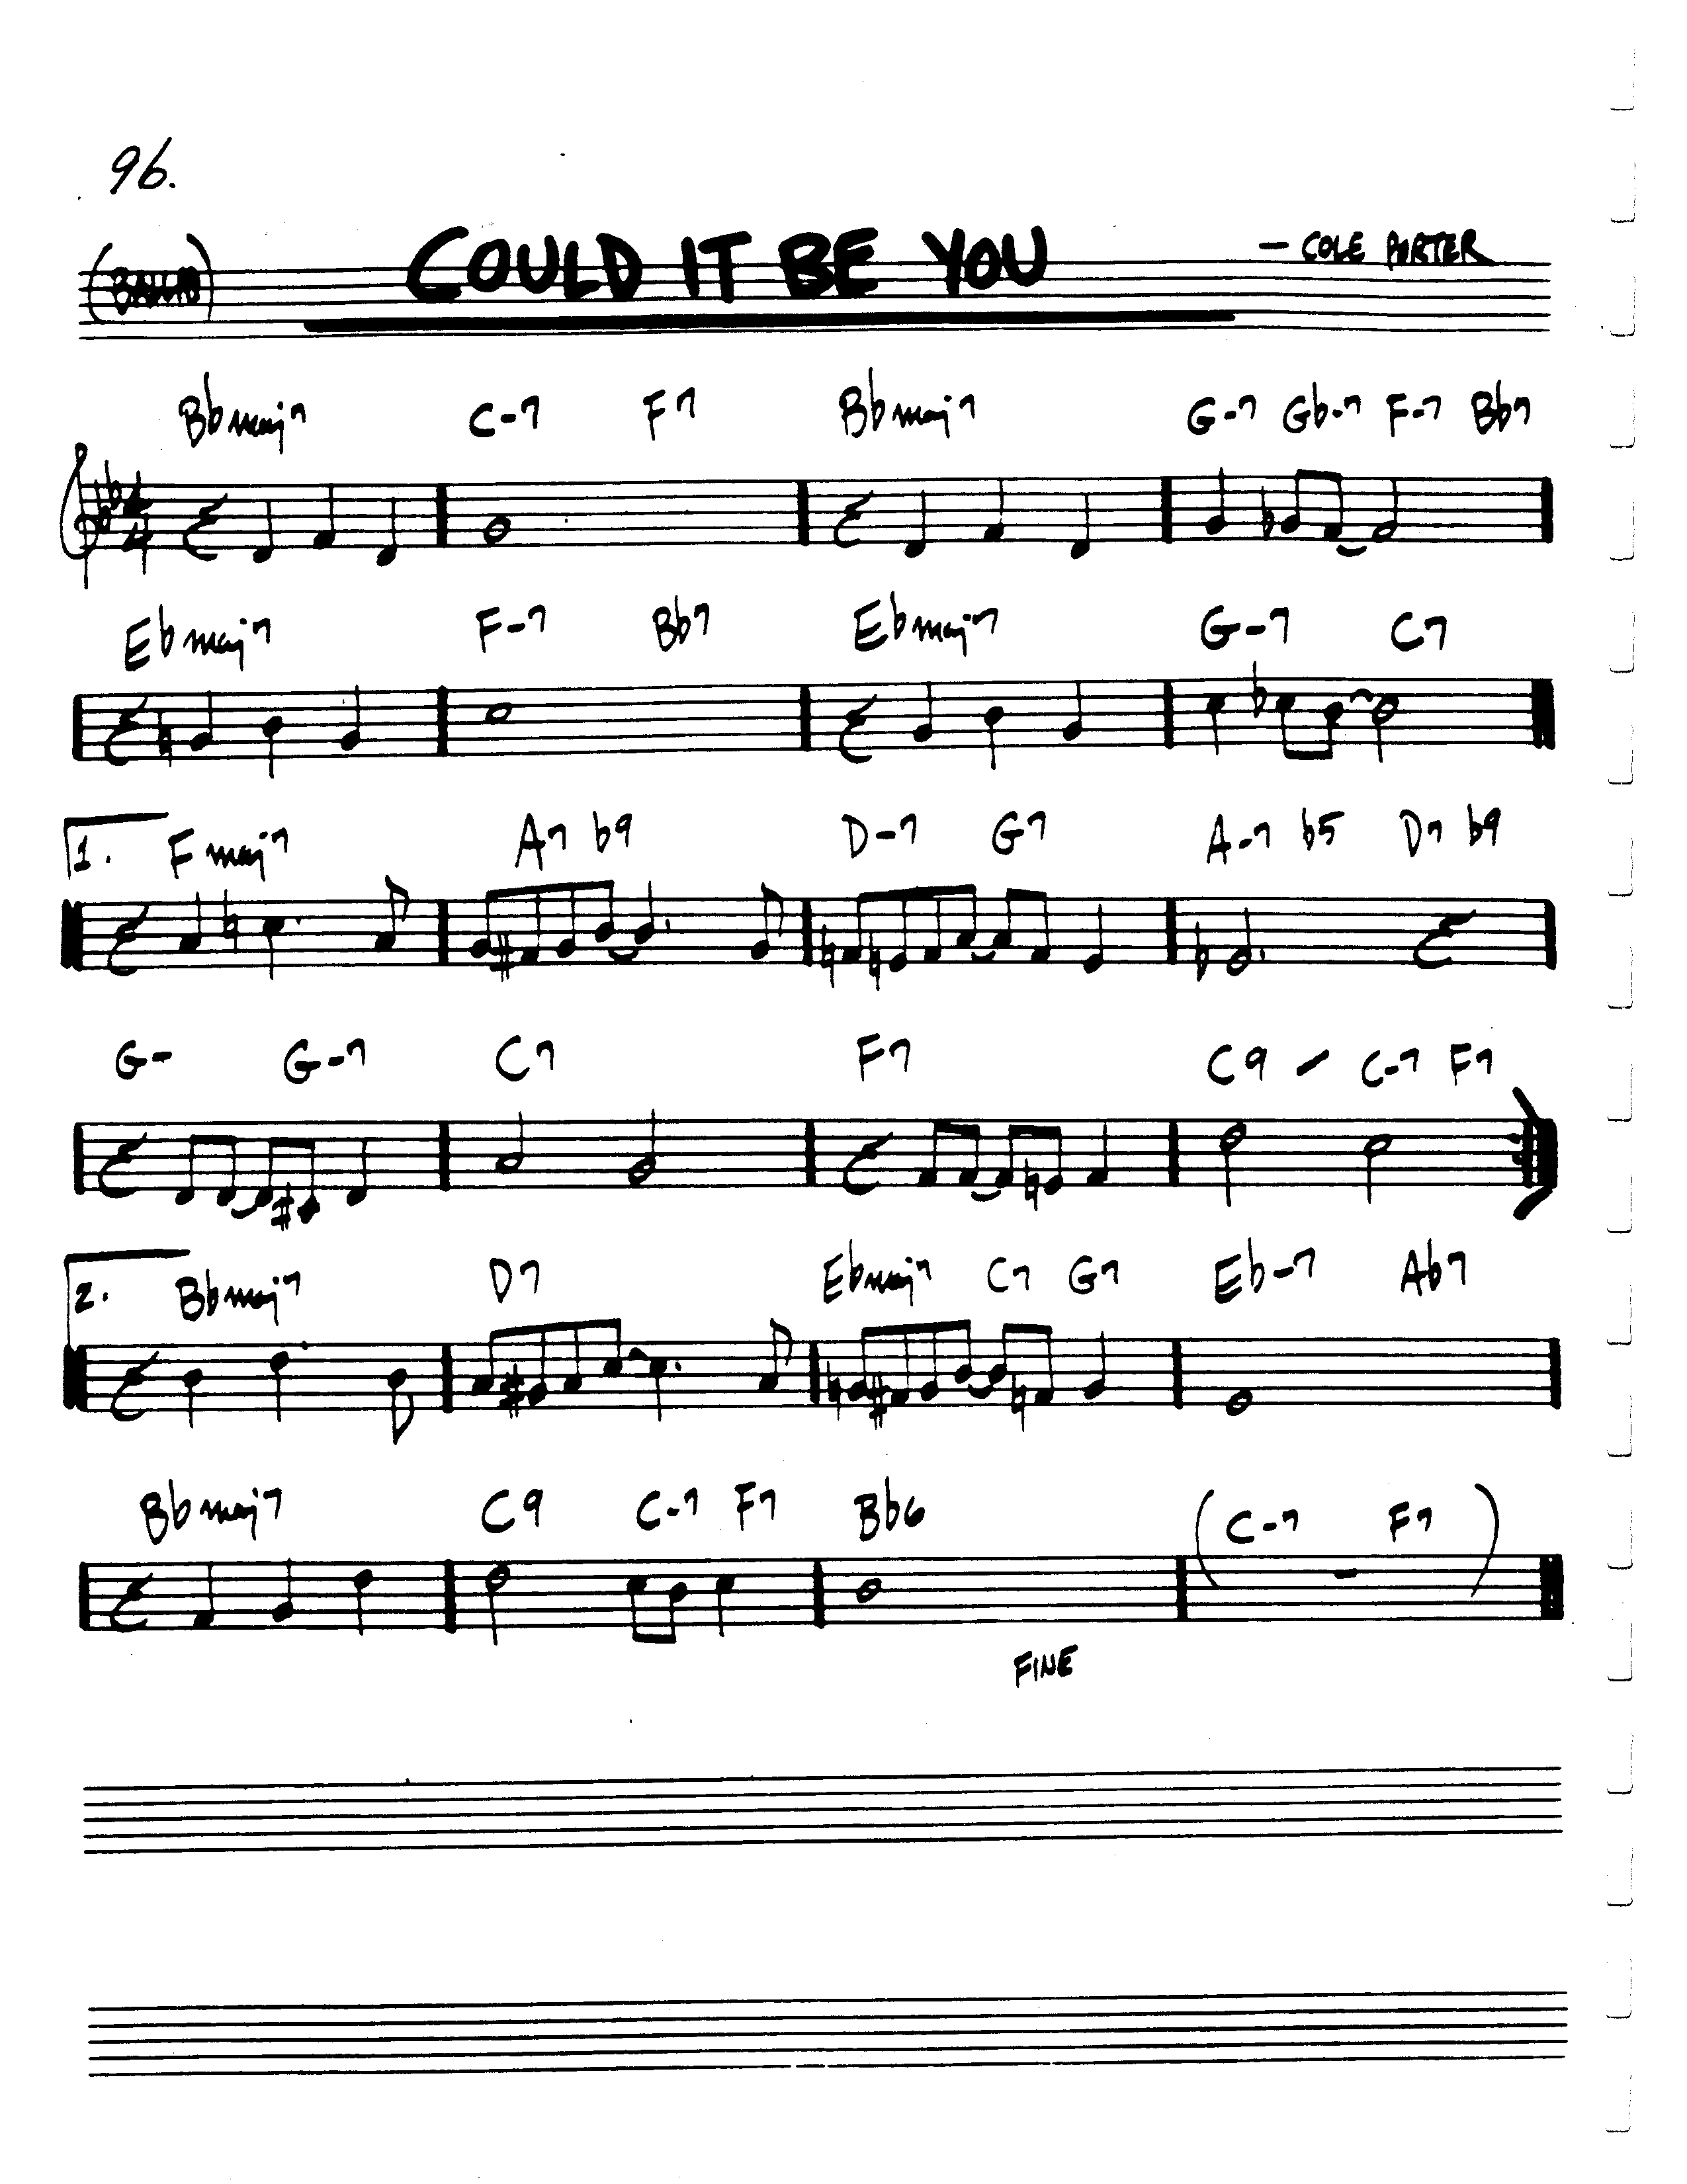 96.
COULD IT BE YOU
— COLE PORTER
Bbmaj7 C-7 F7 Bbmaj7 G-7 Gb-7 F-7 Bb7
4
4
Ebmaj7 F-7 Bb7 Ebmaj7 G-7 C7
1. Fmaj7 A7 b9 D-7 G7 A-7 b5 D7 b9
G- G-7 C7 F7 C9 – C-7 F7
2. Bbmaj7 D7 Ebmaj7 C7 G7 Eb-7 Ab7
Bbmaj7 C9 C-7 F7 Bb6 (C-7 F7)
FINE